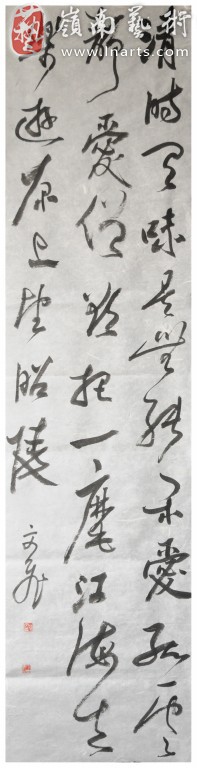 嶺南藝術
www.lnarts.com
清時有味是無能閑愛孤雲
靜愛僧欲把一麾江海去
樂遊原上望昭陵